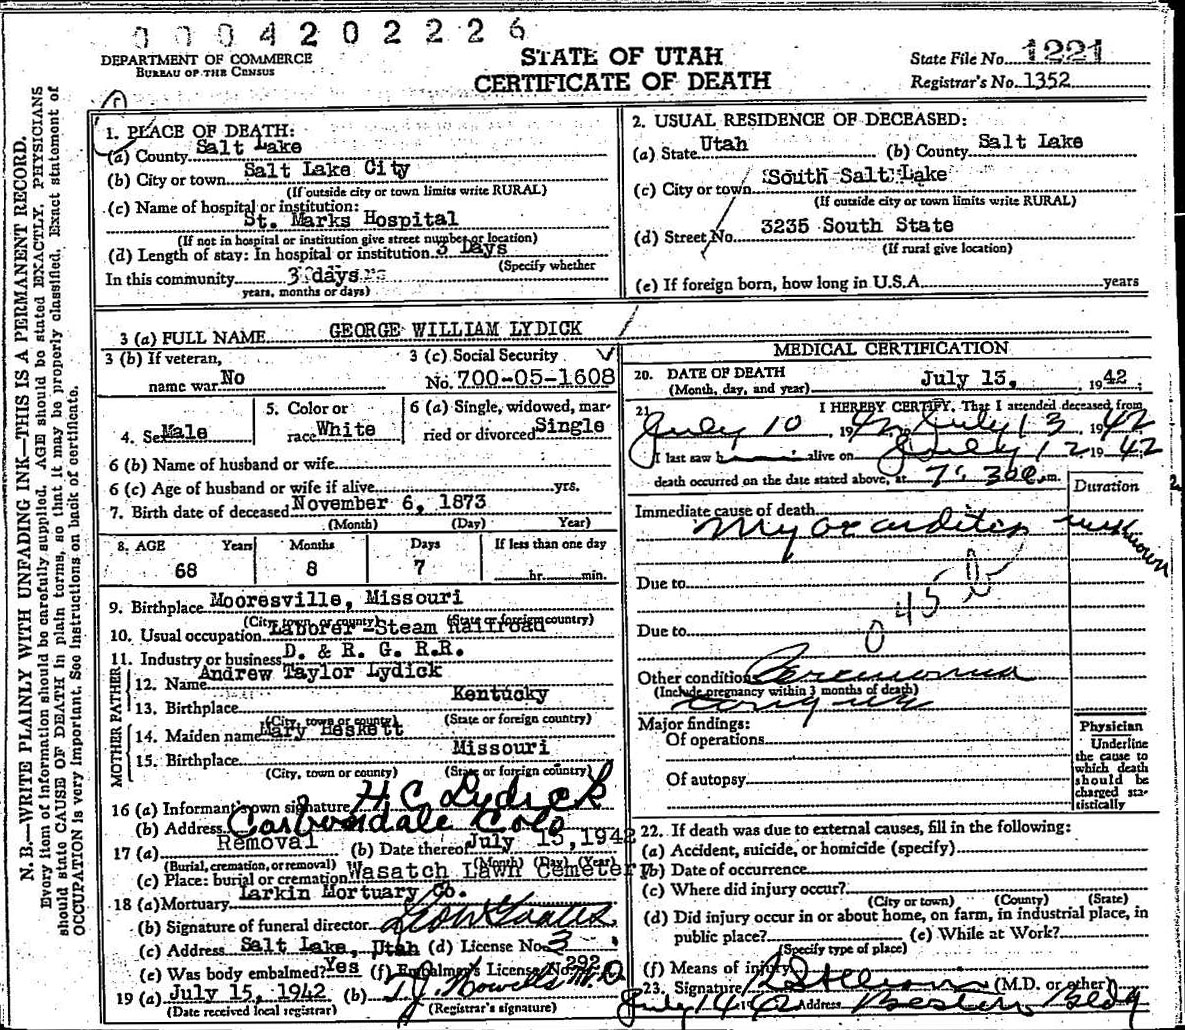 0004202226
DEPARTMENT OF COMMERCE
BUREAU OF THE CENSUS
STATE OF UTAH
CERTIFICATE OF DEATH
State File No. 1221
Registrar's No. 1352
N.B.—WRITE PLAINLY WITH UNFADING INK—THIS IS A PERMANENT RECORD.
Every item of information should be carefully supplied. AGE should be stated EXACTLY. PHYSICIANS
should state CAUSE OF DEATH in plain terms, so that it may be properly classified. Exact statement of
OCCUPATION is very important. See instructions on back of certificate.
1. PLACE OF DEATH:
(a) County Salt Lake
(b) City or town Salt Lake City
(If outside city or town limits write RURAL)
(c) Name of hospital or institution:
St. Marks Hospital
(If not in hospital or institution give street number or location)
(d) Length of stay: In hospital or institution 3 Days
(Specify whether
In this community 3 days
years, months or days)
2. USUAL RESIDENCE OF DECEASED:
(a) State Utah (b) County Salt Lake
(c) City or town South Salt Lake
(If outside city or town limits write RURAL)
(d) Street No. 3235 South State
(If rural give location)
(e) If foreign born, how long in U.S.A. years
3 (a) FULL NAME GEORGE WILLIAM LYDICK
3 (b) If veteran,
name war No
3 (c) Social Security
No. 700-05-1608
4. Sex Male
5. Color or
race White
6 (a) Single, widowed, mar-
ried or divorced Single
6 (b) Name of husband or wife
6 (c) Age of husband or wife if alive yrs.
7. Birth date of deceased November 6, 1873
(Month) (Day) Year)
8. AGE Years Months Days If less than one day
68 8 7 hr. min.
9. Birthplace Mooresville, Missouri
(City, town or county) (State or foreign country)
10. Usual occupation Laborer-Steam Railroad
11. Industry or business D. & R. G. R.R.
FATHER
12. Name Andrew Taylor Lydick
13. Birthplace Kentucky
(City, town or county) (State or foreign country)
MOTHER
14. Maiden name Mary Heskett
15. Birthplace Missouri
(City, town or county) (State or foreign country)
16 (a) Informant's own signature H C Lydick
(b) Address Carbondale Colo
17 (a) Removal (b) Date thereof July 15, 1942
(Burial, cremation, or removal) (Month) (Day) (Year)
(c) Place: burial or cremation Wasatch Lawn Cemetery
18 (a) Mortuary Larkin Mortuary Co.
(b) Signature of funeral director
(c) Address Salt Lake, Utah (d) License No. 3
(e) Was body embalmed? Yes (f) Embalmer's License No. 292
19 (a) July 15, 1942 (b) T.J. Howells M.D
(Date received local registrar) (Registrar's signature)
MEDICAL CERTIFICATION
20. DATE OF DEATH
(Month, day, and year) July 13, 1942
21 I HEREBY CERTIFY, That I attended deceased from
July 10, 1942 to July 13 1942
I last saw h alive on July 12 1942
death occurred on the date stated above, at 7:30 a m.
Duration
Immediate cause of death
Myocarditis unknown
Due to
045
Due to
Other conditions
(Include pregnancy within 3 months of death)
Major findings:
Of operations
Of autopsy
Physician
Underline
the cause to
which death
should be
charged sta-
tistically
22. If death was due to external causes, fill in the following:
(a) Accident, suicide, or homicide (specify)
(b) Date of occurrence
(c) Where did injury occur?
(City or town) (County) (State)
(d) Did injury occur in or about home, on farm, in industrial place, in
public place? (e) While at Work?
(Specify type of place)
(f) Means of injury
23. Signature (M.D. or other)
July 14 19 Address Bldg